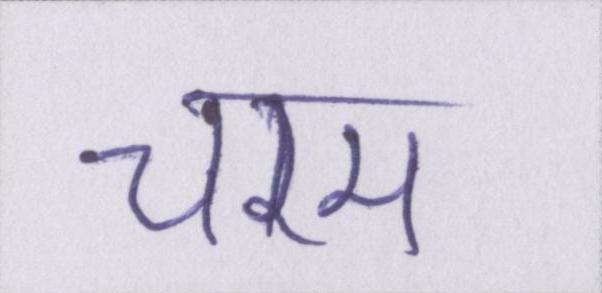 चरम